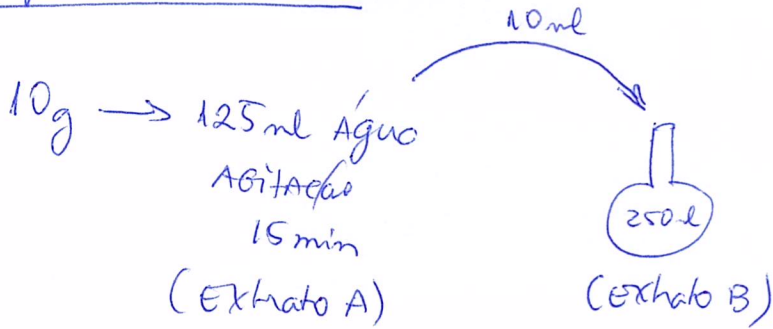 10ml
10g → 125ml Água
AGitAção
15 min
(Extrato A)
250 l
(Extrato B)